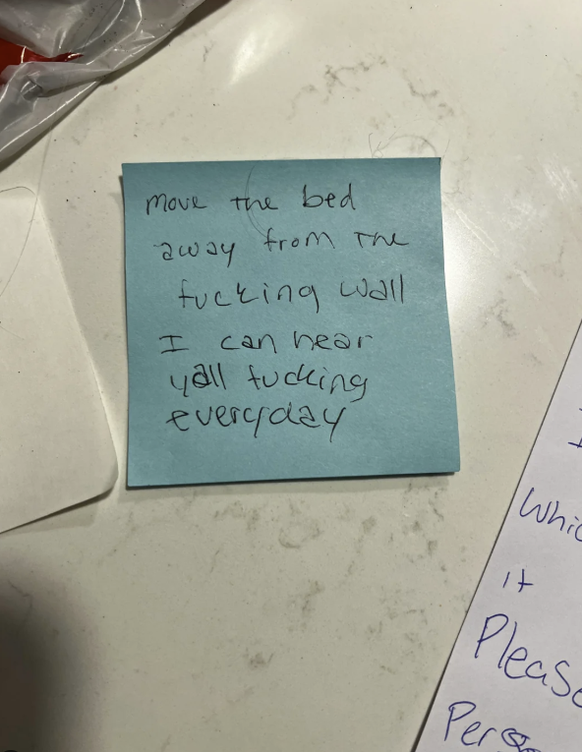 move the bed
away from the
fucking wall
I can hear
yall fucking
everyday
I
Whic
it
Please